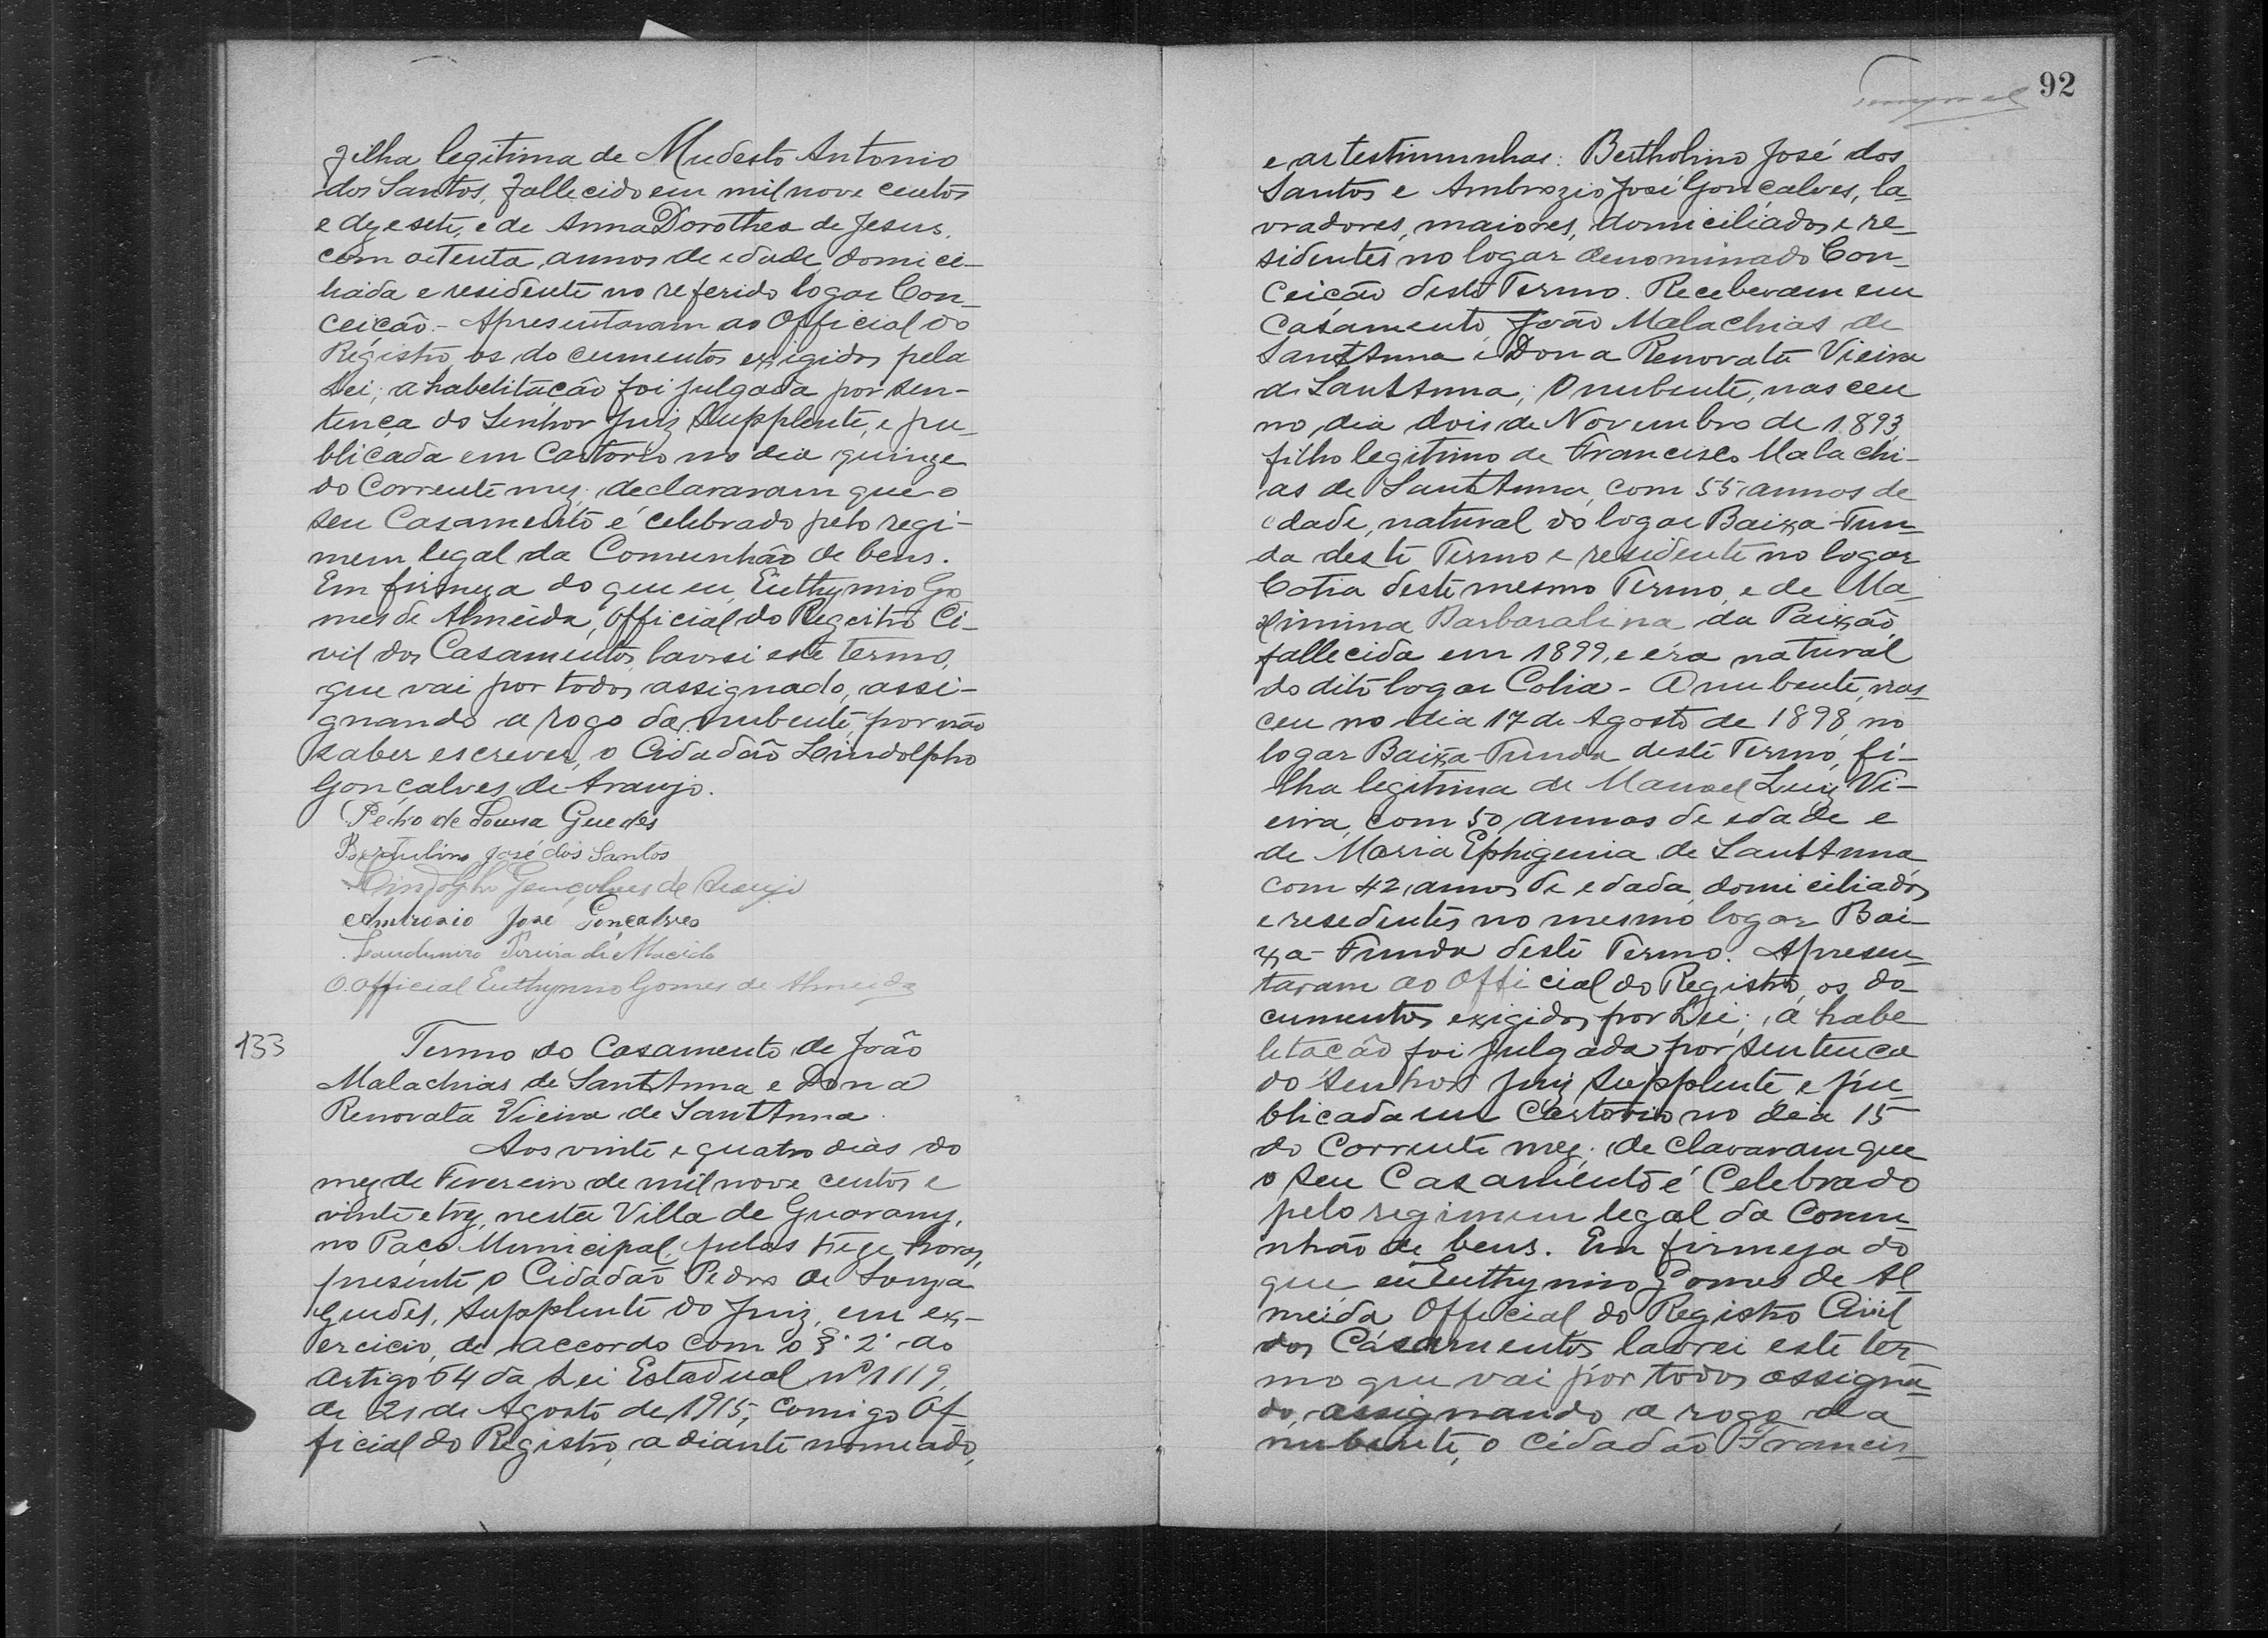 filha legitima de Mudesto Antonio
dos Santos, fallecido em mil nove centos
e dezesete, e de Anna Dorothea de Jesus,
com oitenta annos de edade, domici-
liada e residente no referido logar Con-
ceição. - Apresentaram ao Official do
Registro os documentos exigidos pela
Lei; a habelitação foi julgada por sen-
tença do Senhor Juiz Supplente, e pu-
blicada em Cartorio no dia quinze
do Corrente mez; declararam que o
seu Casamento é celebrado pelo regi-
mem legal da Comunhão de bens.
Em firmeza do que eu, Euthymio Go
mes de Almeida, Official do Registro Ci-
vil dos Casamentos, lavrei este termo,
que vai por todos assignado, assi-
gnando a rogo da nubente, por não
saber escrever, o Cidadão Lindolpho
Gonçalves de Araujo.
Pedro de Souza Guedes
Bertulino José dos Santos
Lindolpho Gonçalves de Araujo
Ambrosio José Gonçalves
Pereira de Macedo
O Official Euthymio Gomes de Almeida
133
Termo do Casamento de João
Malachias de Sant'Anna e Dona
Renovata Vieira de Sant'Anna.
Aos vinte e quatro dias do
mez de Fevereiro de mil nove centos e
vinte e trez, nesta Villa de Guarany,
no Paço Municipal, pelas treze horas,
presente o Cidadão Pedro de Souza
Guedes, Supplente do Juiz, em ex-
ercicio, de accordo com o § 2º do
artigo 64 da Lei Estadual nº 1119,
de 21 de Agosto de 1915, Comigo Of-
ficial do Registro, a diante nomeado,
92
e as testimunhas: Bertholino José dos
Santos e Ambrozio José Gonçalves, la-
vradores, maiores, domiciliados e re-
sidentes no logar denominado Con-
Ceicão deste Termo. Receberam em
Casamento, João Malachias de
Sant'Anna e Dona Renovata Vieira
de Sant'Anna; O nubente, nasceu
no dia dois de Novembro de 1893,
filho legitimo de Francisco Malachi-
as de Sant'Anna, com 55 annos de
edade, natural do logar Baixa-Fun-
da deste Termo e residente no logar
Cotia deste mesmo Termo, e de Ma-
ximina Barbaralina da Paixão
fallecida em 1899, e éra natural
do dito logar Cotia - A nubente, nas-
ceu no dia 17 de Agosto de 1898, no
logar Baixa-Funda deste Termo, fi-
lha legitima de Manoel Luiz Vi-
eira, com 50 annos de edade e
de Maria Ephigenia de Sant'Anna
com 42 annos de edada, domiciliados
e resedentes no mesmo logar Bai-
xa-Funda deste Termo. Apresen-
taram ao Official do Registro, os do-
cumentos exigidos por Lei; a habe
litacão foi julgada por sentença
do Senhor Juiz Supplente e pu-
blicada em Cartorio no dia 15
do Corrente mez; declararam que
o seu Casamento é Celebrado
pelo regimem legal da Comu-
nhão de bens. Em firmeza do
que eu Euthymio Gomes de Al-
meida Official do Registro Civil
dos Casamentos, lavrei este ter-
mo que vai por todos assigna-
do, assignando a rogo da
nubente, o Cidadão Francis-